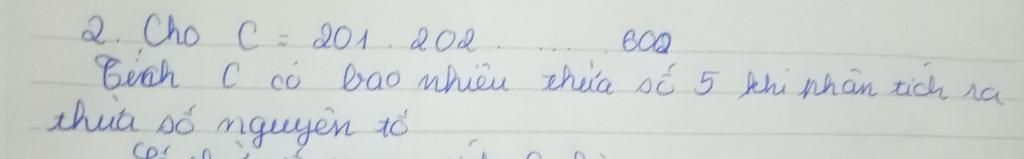 2. Cho C = 201 . 202 . ... 602
Tính C có bao nhiêu thừa số 5 khi phân tích ra
thừa số nguyên tố